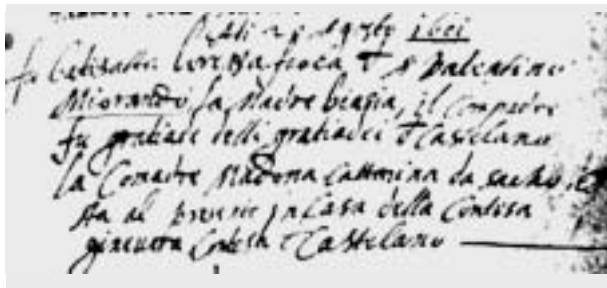 Adi 2 d Agosto 1601
fu batizatta Lorenza fiola d Valentino
Miorandi, la Madre biasia, il Compadre
fu gratiade delli gratiadei d Castelano
la Comadre Madona Cattarina da
sta al presente in Casa della Contesa
gineura Contesa d Castelano